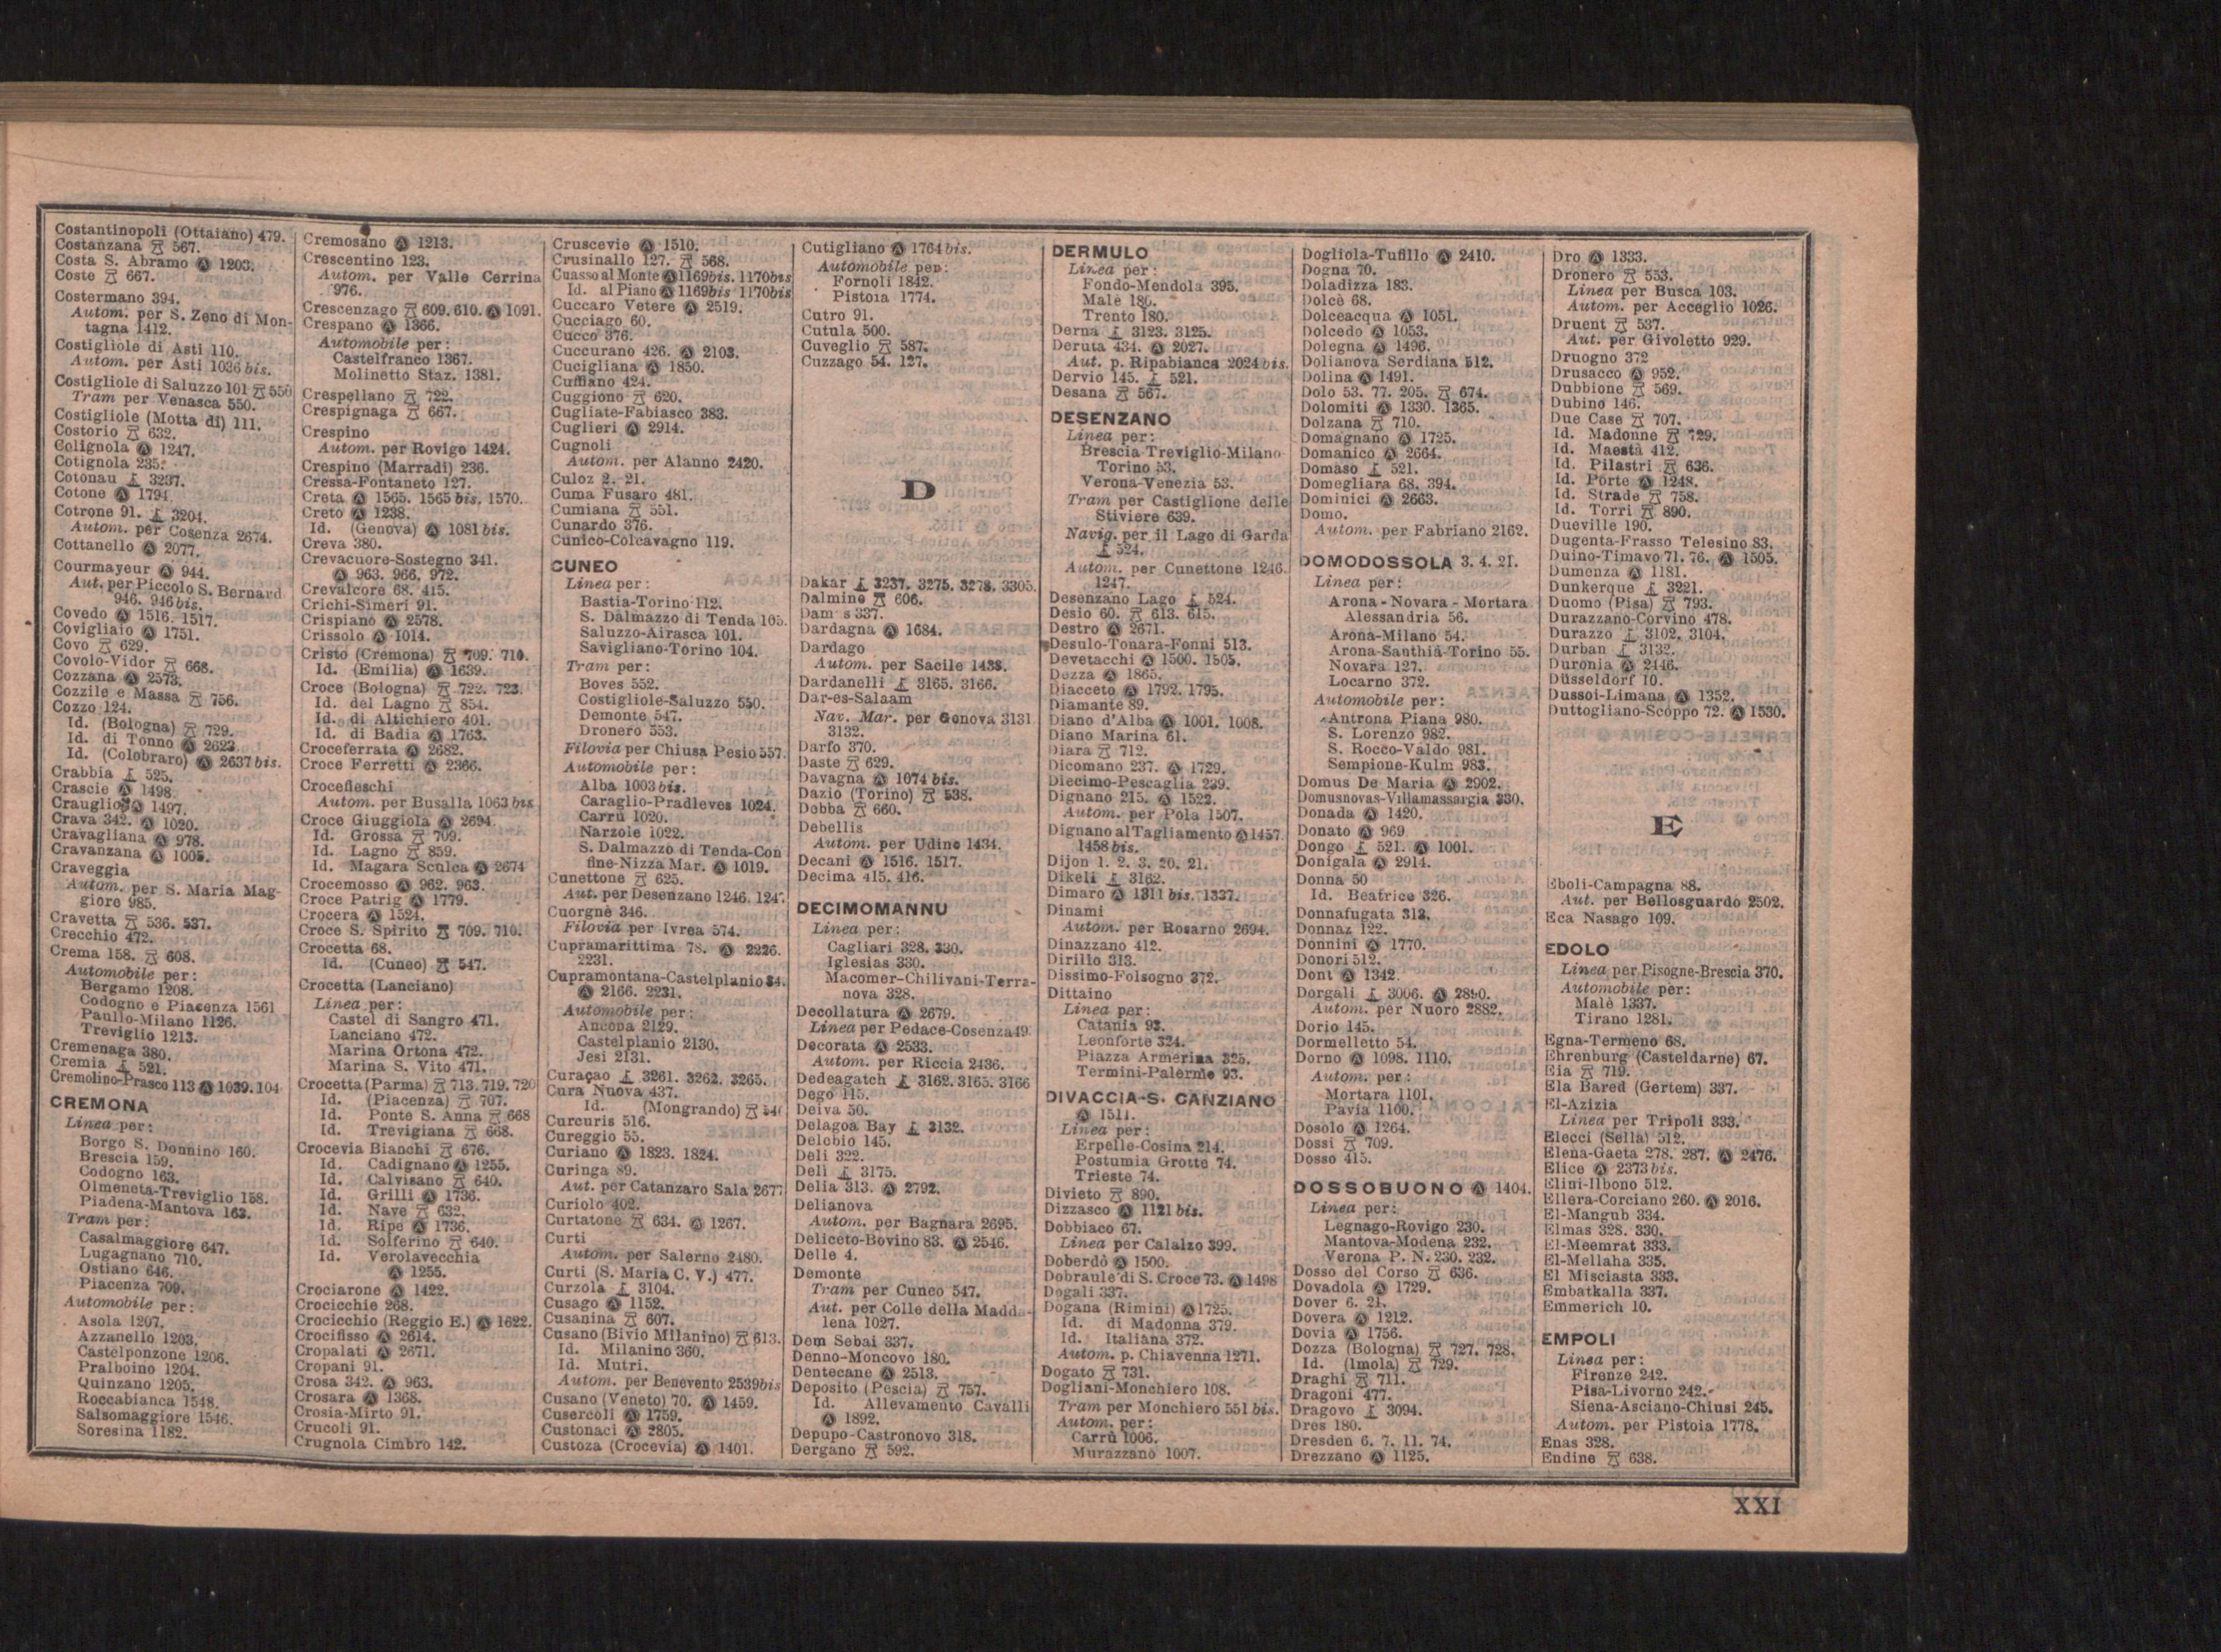 Costantinopoli (Ottaiano) 479.
Costanzana 567.
Costa S. Abramo Ⓐ 1203.
Coste 667.
Costermano 394.
Autom. per S. Zeno di Mon-
tagna 1412.
Costigliole di Asti 110.
Autom. per Asti 1036 bis.
Costigliole di Saluzzo 101 550
Tram per Venasca 550.
Costigliole (Motta di) 111.
Costorio 632.
Cotignola Ⓐ 1247.
Cotignola 235.
Cotonau 3237.
Cotone Ⓐ 1794.
Cotrone 91. 3204.
Autom. per Cosenza 2674.
Cottanello Ⓐ 2077.
Courmayeur Ⓐ 944.
Aut. per Piccolo S. Bernard
946. 946 bis.
Covedo Ⓐ 1516. 1517.
Covigliaio Ⓐ 1751.
Covo 629.
Covolo-Vidor 668.
Cozzana Ⓐ 2573.
Cozzile e Massa 756.
Cozzo 124.
Id. (Bologna) 729.
Id. di Tonno Ⓐ 2623.
Id. (Colobraro) Ⓐ 2637 bis.
Crabbia 525.
Crascie Ⓐ 1498.
Crauglio Ⓐ 1497.
Crava 342. Ⓐ 1020.
Cravagliana Ⓐ 978.
Cravanzana Ⓐ 1005.
Craveggia
Autom. per S. Maria Mag-
giore 985.
Cravetta 536. 537.
Crecchio 472.
Crema 158. 608.
Automobile per:
Bergamo 1208.
Codogno e Piacenza 1561
Paullo-Milano 1126.
Treviglio 1213.
Cremenaga 380.
Cremia 521.
Cremolino-Prasco 113 Ⓐ 1039. 104
CREMONA
Linea per:
Borgo S. Donnino 160.
Brescia 159.
Codogno 163.
Olmeneta-Treviglio 158.
Piadena-Mantova 163.
Tram per:
Casalmaggiore 647.
Lugagnano 710.
Ostiano 646.
Piacenza 709.
Automobile per:
Asola 1207.
Azzanello 1203.
Castelponzone 1206.
Pralboino 1204.
Quinzano 1205.
Roccabianca 1548.
Salsomaggiore 1546.
Soresina 1182.
Cremosano Ⓐ 1213.
Crescentino 123.
Autom. per Valle Cerrina
976.
Crescenzago 609. 610. Ⓐ 1091.
Crespano Ⓐ 1366.
Automobile per:
Castelfranco 1367.
Molinetto Staz. 1381.
Crespellano 722.
Crespignaga 667.
Crespino
Autom. per Rovigo 1424.
Crespino (Marradi) 236.
Cressa-Fontaneto 127.
Creta Ⓐ 1565. 1565 bis. 1570.
Creto Ⓐ 1238.
Id. (Genova) Ⓐ 1081 bis.
Creva 380.
Crevacuore-Sostegno 341.
Ⓐ 963. 966. 972.
Crevalcore 68. 415.
Crichi-Simeri 91.
Crispiano Ⓐ 2578.
Crissolo Ⓐ 1014.
Cristo (Cremona) 709. 710.
Id. (Emilia) Ⓐ 1639.
Croce (Bologna) 722. 723.
Id. del Lagno 854.
Id. di Altichiero 401.
Id. di Badia Ⓐ 1763.
Croceferrata Ⓐ 2682.
Croce Ferretti Ⓐ 2366.
Crocefieschi
Autom. per Busalla 1063 bis
Croce Giuggiola Ⓐ 2694.
Id. Grossa 709.
Id. Lagno 859.
Id. Magara Sculca Ⓐ 2674
Crocemosso Ⓐ 962. 963.
Croce Patrig Ⓐ 1779.
Crocera Ⓐ 1524.
Croce S. Spirito 709. 710.
Crocetta 68.
Id. (Cuneo) 547.
Crocetta (Lanciano)
Linea per:
Castel di Sangro 471.
Lanciano 472.
Marina Ortona 472.
Marina S. Vito 471.
Crocetta (Parma) 713. 719. 720
Id. (Piacenza) 707.
Id. Ponte S. Anna 668
Id. Trevigiana 668.
Crocevia Bianchi 676.
Id. Cadignano Ⓐ 1255.
Id. Calvisano 640.
Id. Grilli Ⓐ 1736.
Id. Nave 632.
Id. Ripe Ⓐ 1736.
Id. Solferino 640.
Id. Verolavecchia
Ⓐ 1255.
Crociarone Ⓐ 1422.
Crocicchie 268.
Crocicchio (Reggio E.) Ⓐ 1622.
Crocifisso Ⓐ 2614.
Cropalati Ⓐ 2671.
Cropani 91.
Crosa 342. Ⓐ 963.
Crosara Ⓐ 1368.
Crosia-Mirto 91.
Crucoli 91.
Crugnola Cimbro 142.
Cruscevie Ⓐ 1510.
Crusinallo 127. 568.
Cuasso al Monte Ⓐ 1169bis. 1170bis
Id. al Piano Ⓐ 1169bis 1170bis
Cuccaro Vetere Ⓐ 2519.
Cucciago 60.
Cucco 376.
Cuccurano 426. Ⓐ 2103.
Cucigliana Ⓐ 1850.
Cuffiano 424.
Cuggiono 620.
Cugliate-Fabiasco 383.
Cuglieri Ⓐ 2914.
Cugnoli
Autom. per Alanno 2420.
Culoz 2. 21.
Cuma Fusaro 481.
Cumiana 551.
Cunardo 376.
Cunico-Colcavagno 119.
CUNEO
Linea per:
Bastia-Torino 112.
S. Dalmazzo di Tenda 105.
Saluzzo-Airasca 101.
Savigliano-Torino 104.
Tram per:
Boves 552.
Costigliole-Saluzzo 550.
Demonte 547.
Dronero 553.
Filovia per Chiusa Pesio 557.
Automobile per:
Alba 1003 bis.
Caraglio-Pradleves 1024.
Carrù 1020.
Narzole 1022.
S. Dalmazzo di Tenda-Con
fine-Nizza Mar. Ⓐ 1019.
Cunettone 625.
Aut. per Desenzano 1246. 1247
Cuorgnè 346.
Filovia per Ivrea 574.
Cupramarittima 78. Ⓐ 2226.
2231.
Cupramontana-Castelplanio 84.
Ⓐ 2166. 2231.
Automobile per:
Ancona 2129.
Castelplanio 2130.
Jesi 2131.
Curaçao 3261. 3262. 3265.
Cura Nuova 437.
Id. (Mongrando) 540
Curcuris 516.
Cureggio 55.
Curiano Ⓐ 1823. 1824.
Curinga 89.
Aut. per Catanzaro Sala 2677
Curiolo 402.
Curtatone 634. Ⓐ 1267.
Curti
Autom. per Salerno 2480.
Curti (S. Maria C. V.) 477.
Curzola 3104.
Cusago Ⓐ 1152.
Cusanina 607.
Cusano (Bivio Milanino) 613.
Id. Milanino 360.
Id. Mutri.
Autom. per Benevento 2539bis
Cusano (Veneto) 70. Ⓐ 1459.
Cusercoli Ⓐ 1759.
Custonaci Ⓐ 2805.
Custoza (Crocevia) Ⓐ 1401.
Cutigliano Ⓐ 1764 bis.
Automobile per:
Fornoli 1842.
Pistoia 1774.
Cutro 91.
Cutula 500.
Cuveglio 587.
Cuzzago 54. 127.
D
Dakar 3237. 3275. 3278. 3305.
Dalmine 606.
Dam s 337.
Dardagna Ⓐ 1684.
Dardago
Autom. per Sacile 1438.
Dardanelli 3165. 3166.
Dar-es-Salaam
Nav. Mar. per Genova 3131
3132.
Darfo 370.
Daste 629.
Davagna Ⓐ 1074 bis.
Dazio (Torino) 538.
Debba 660.
Debellis
Autom. per Udine 1434.
Decani Ⓐ 1516. 1517.
Decima 415. 416.
DECIMOMANNU
Linea per:
Cagliari 328. 330.
Iglesias 330.
Macomer-Chilivani-Terra-
nova 328.
Decollatura Ⓐ 2679.
Linea per Pedace-Cosenza 49.
Decorata Ⓐ 2533.
Autom. per Riccia 2436.
Dedeagatch 3162. 3165. 3166
Dego 115.
Deiva 50.
Delagoa Bay 3132.
Delebio 145.
Deli 322.
Deli 3175.
Delia 313. Ⓐ 2792.
Delianova
Autom. per Bagnara 2695.
Deliceto-Bovino 83. Ⓐ 2546.
Delle 4.
Demonte
Tram per Cuneo 547.
Aut. per Colle della Madd -
lena 1027.
Dem Sebai 337.
Denno-Moncovo 180.
Dentecane Ⓐ 2513.
Deposito (Pescia) 757.
Id. Allevamento Cavalli
Ⓐ 1892.
Depupo-Castronovo 318.
Dergano 592.
DERMULO
Linea per:
Fondo-Mendola 395.
Malè 180.
Trento 180.
Derna 3123. 3125.
Deruta 434. Ⓐ 2027.
Aut. p. Ripabianca 2024 bis.
Dervio 145. 521.
Desana 567.
DESENZANO
Linea per:
Brescia Treviglio-Milano-
Torino 53.
Verona-Venezia 53.
Tram per Castiglione delle
Stiviere 639.
Navig. per il Lago di Garda
524.
Autom. per Cunettone 1246.
1247.
Desenzano Lago 524.
Desio 60. 613. 615.
Destro Ⓐ 2671.
Desulo-Tonara-Fonni 513.
Devetacchi Ⓐ 1500. 1505.
Dezza Ⓐ 1865.
Diacceto Ⓐ 1792. 1795.
Diamante 89.
Diano d'Alba Ⓐ 1001. 1008.
Diano Marina 61.
Diara 712.
Dicomano 237. Ⓐ 1729.
Diecimo-Pescaglia 239.
Dignano 215. Ⓐ 1522.
Autom. per Pola 1507.
Dignano al Tagliamento Ⓐ 1457.
1458 bis.
Dijon 1. 2. 3. 20. 21.
Dikeli 3162.
Dimaro Ⓐ 1311 bis. 1337.
Dinami
Autom. per Rosarno 2694.
Dinazzano 412.
Dirillo 313.
Dissimo-Folsogno 372.
Dittaino
Linea per:
Catania 93.
Leonforte 324.
Piazza Armerina 325.
Termini-Palermo 93.
DIVACCIA-S. CANZIANO
Ⓐ 1511.
Linea per:
Erpelle-Cosina 214.
Postumia Grotte 74.
Trieste 74.
Divieto 890.
Dizzasco Ⓐ 1121 bis.
Dobbiaco 67.
Linea per Calalzo 399.
Doberdò Ⓐ 1500.
Dobraule di S. Croce 73. Ⓐ 1498
Dogali 337.
Dogana (Rimini) Ⓐ 1725.
Id. di Madonna 379.
Id. Italiana 372.
Autom. p. Chiavenna 1271.
Dogato 731.
Dogliani-Monchiero 108.
Tram per Monchiero 551 bis.
Autom. per:
Carrù 1006.
Murazzano 1007.
Dogliola-Tufillo Ⓐ 2410.
Dogna 70.
Doladizza 183.
Dolcè 68.
Dolceacqua Ⓐ 1051.
Dolcedo Ⓐ 1053.
Dolegna Ⓐ 1496.
Dolianova Serdiana 512.
Dolina Ⓐ 1491.
Dolo 53. 77. 205. 674.
Dolomiti Ⓐ 1330. 1365.
Dolzana 710.
Domagnano Ⓐ 1725.
Domanico Ⓐ 2664.
Domaso 521.
Domegliara 68. 394.
Dominici Ⓐ 2663.
Domo.
Autom. per Fabriano 2162.
DOMODOSSOLA 3. 4. 21.
Linea per:
Arona - Novara - Mortara
Alessandria 56.
Arona-Milano 54.
Arona-Santhià-Torino 55.
Novara 127.
Locarno 372.
Automobile per:
Antrona Piana 980.
S. Lorenzo 982.
S. Rocco-Valdo 981.
Sempione-Kulm 983.
Domus De Maria Ⓐ 2902.
Domusnovas-Villamassargia 330.
Donada Ⓐ 1420.
Donato Ⓐ 969.
Dongo 521. Ⓐ 1001.
Donigala Ⓐ 2914.
Donna 50
Id. Beatrice 326.
Donnafugata 313.
Donnaz 122.
Donnini Ⓐ 1770.
Donori 512.
Dont Ⓐ 1342.
Dorgali 3006. Ⓐ 2890.
Autom. per Nuoro 2882.
Dorio 145.
Dormelletto 54.
Dorno Ⓐ 1098. 1110.
Autom. per:
Mortara 1101.
Pavia 1100.
Dosolo Ⓐ 1264.
Dossi 709.
Dosso 415.
DOSSOBUONO Ⓐ 1404.
Linea per:
Legnago-Rovigo 230.
Mantova-Modena 232.
Verona P. N. 230. 232.
Dosso del Corso 636.
Dovadola Ⓐ 1729.
Dover 6. 21.
Dovera Ⓐ 1212.
Dovia Ⓐ 1756.
Dozza (Bologna) 727. 728.
Id. (Imola) 729.
Draghi 711.
Dragoni 477.
Dragovo 3094.
Dres 180.
Dresden 6. 7. 11. 74.
Drezzano Ⓐ 1125.
Dro Ⓐ 1333.
Dronero 553.
Linea per Busca 103.
Autom. per Acceglio 1026.
Druent 537.
Aut. per Givoletto 929.
Druogno 372
Drusacco Ⓐ 952.
Dubbione 569.
Dubino 146.
Due Case 707.
Id. Madonne 729.
Id. Maestà 412.
Id. Pilastri 636.
Id. Porte Ⓐ 1248.
Id. Strade 758.
Id. Torri 890.
Dueville 190.
Dugenta-Frasso Telesino 83.
Duino-Timavo 71. 76. Ⓐ 1505.
Dumenza Ⓐ 1181.
Dunkerque 3221.
Duomo (Pisa) 793.
Durazzano-Corvino 478.
Durazzo 3102. 3104.
Durban 3132.
Duronia Ⓐ 2446.
Düsseldorf 10.
Dussoi-Limana Ⓐ 1352.
Duttogliano-Scoppo 72. Ⓐ 1530.
E
Eboli-Campagna 88.
Aut. per Bellosguardo 2502.
Eca Nasago 109.
EDOLO
Linea per Pisogne-Brescia 370.
Automobile per:
Malè 1337.
Tirano 1281.
Egna-Termeno 68.
Ehrenburg (Casteldarne) 67.
Eia 719.
Ela Bared (Gertem) 337.
El-Azizia
Linea per Tripoli 333.
Elecci (Sella) 512.
Elena-Gaeta 278. 287. Ⓐ 2476.
Elice Ⓐ 2373 bis.
Elini-Ilbono 512.
Ellera-Corciano 260. Ⓐ 2016.
El-Mangub 334.
Elmas 328. 330.
El-Meemrat 333.
El-Mellaha 335.
El Misciasta 333.
Embatkalla 337.
Emmerich 10.
EMPOLI
Linea per:
Firenze 242.
Pisa-Livorno 242.
Siena-Asciano-Chiusi 245.
Autom. per Pistoia 1778.
Enas 328.
Endine 638.
XXI